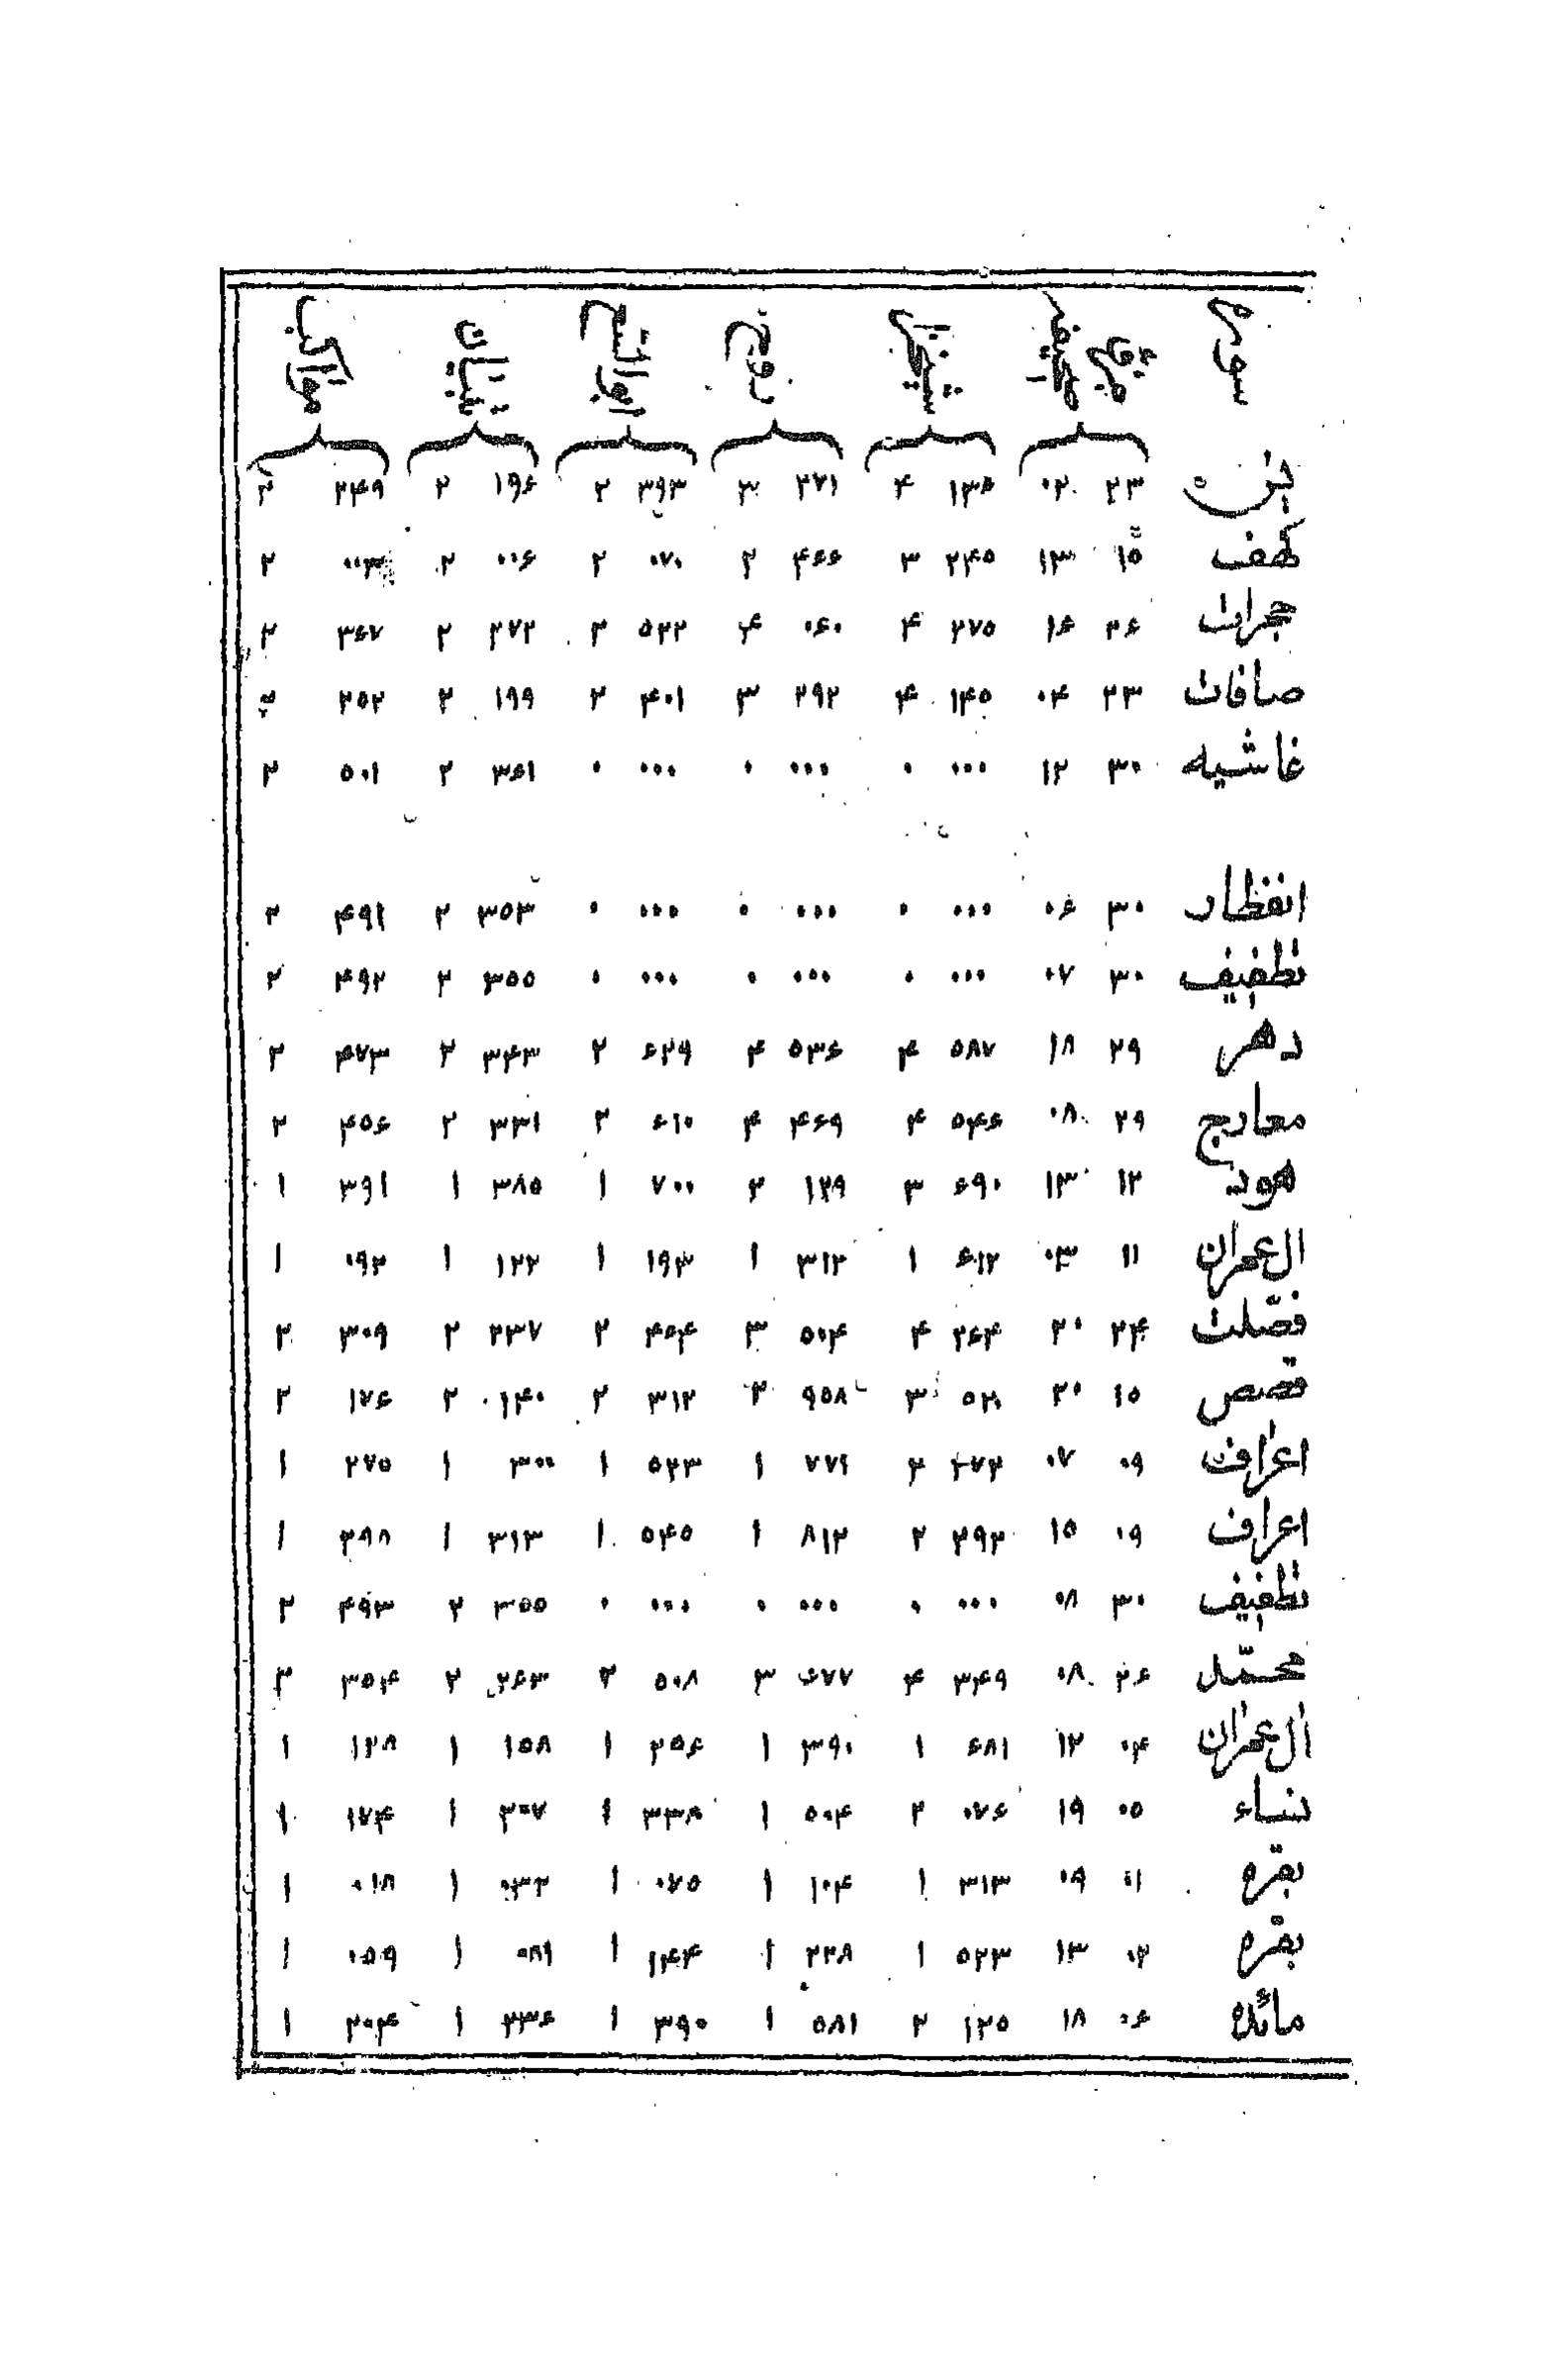 سوره
یس ۲۳ ۰۲ ۱۳۶ ۴ ۲۷۱ ۳ ۳۹۳ ۲ ۱۹۶ ۲ ۲۴۹ ۲
کهف ۱۵ ۱۳ ۲۴۵ ۳ ۴۶۶ ۲ ۰۷۰ ۲ ۰۰۶ ۲ ۰۰۳ ۲
حجرات ۲۶ ۱۶ ۲۷۵ ۴ ۰۶۰ ۴ ۵۲۲ ۲ ۲۷۲ ۲ ۳۶۷ ۲
صافات ۲۳ ۰۴ ۱۴۵ ۴ ۲۹۲ ۳ ۴۰۱ ۲ ۱۹۹ ۲ ۲۵۲ ۲
غاشیه ۳۰ ۱۲ ۰۰۰ ۰ ۰۰۰ ۰ ۰۰۰ ۰ ۳۶۱ ۲ ۵۰۱ ۲
انفطار ۳۰ ۰۶ ۰۰۰ ۰ ۰۰۰ ۰ ۰۰۰ ۰ ۳۵۳ ۲ ۴۹۱ ۲
تطفیف ۳۰ ۰۷ ۰۰۰ ۰ ۰۰۰ ۰ ۰۰۰ ۰ ۳۵۵ ۲ ۴۹۲ ۲
دهر ۲۹ ۱۸ ۵۸۷ ۴ ۵۳۶ ۴ ۶۲۹ ۲ ۳۴۳ ۲ ۴۷۳ ۲
معارج ۲۹ ۰۸ ۵۴۶ ۴ ۴۶۹ ۴ ۶۱۰ ۲ ۳۳۱ ۲ ۴۵۶ ۲
هود ۱۲ ۱۳ ۶۹۰ ۳ ۱۲۹ ۲ ۷۰۰ ۱ ۳۸۵ ۱ ۳۹۱ ۱
ال عمران ۱۱ ۰۳ ۶۱۲ ۱ ۳۱۲ ۱ ۱۹۳ ۱ ۱۲۲ ۱ ۰۹۲ ۱
فصّلت ۲۴ ۲۰ ۲۶۴ ۴ ۵۰۴ ۳ ۴۵۴ ۲ ۲۳۷ ۲ ۳۰۹ ۲
قصص ۱۵ ۲۰ ۵۲۰ ۳ ۹۵۸ ۲ ۳۱۲ ۲ ۱۴۰ ۲ ۱۷۶ ۲
اعراف ۰۹ ۰۷ ۲۷۲ ۲ ۷۷۱ ۱ ۵۲۳ ۱ ۳۰۰ ۱ ۲۷۵ ۱
اعراف ۰۹ ۱۵ ۳۹۲ ۲ ۸۱۲ ۱ ۵۴۵ ۱ ۳۱۳ ۱ ۲۹۸ ۱
تطفیف ۳۰ ۰۸ ۰۰۰ ۰ ۰۰۰ ۰ ۰۰۰ ۰ ۳۵۵ ۲ ۴۹۳ ۲
محمّد ۲۶ ۰۸ ۳۴۹ ۴ ۶۷۷ ۳ ۵۰۸ ۲ ۲۶۳ ۲ ۳۵۴ ۲
ال عمران ۰۴ ۱۲ ۶۸۱ ۱ ۳۹۰ ۱ ۲۵۶ ۱ ۱۵۸ ۱ ۱۲۸ ۱
نساء ۰۵ ۱۹ ۰۷۶ ۲ ۵۰۴ ۱ ۳۳۸ ۱ ۲۰۷ ۱ ۱۷۴ ۱
بقره ۰۱ ۰۹ ۳۱۳ ۱ ۱۰۴ ۱ ۰۷۵ ۱ ۰۳۲ ۱ ۰۱۸ ۱
بقره ۰۲ ۱۳ ۵۲۳ ۱ ۲۲۸ ۱ ۱۴۴ ۱ ۰۸۱ ۱ ۰۵۹ ۱
مائده ۰۶ ۱۸ ۱۲۵ ۲ ۵۸۱ ۱ ۳۹۰ ۱ ۲۳۶ ۱ ۲۰۴ ۱